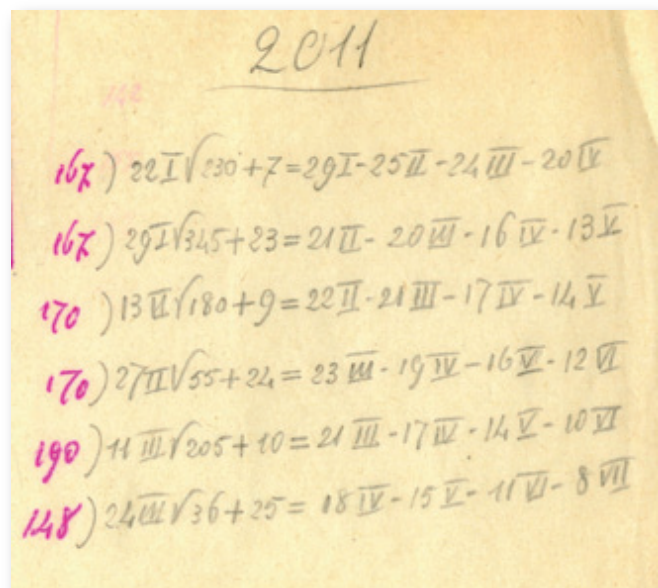 2011
167) 22 I √230 + 7 = 29 I - 25 II - 24 III - 20 IV
167) 29 I √345 + 23 = 21 II - 20 III - 16 IV - 13 V
170) 13 II √180 + 9 = 22 II - 21 III - 17 IV - 14 V
170) 27 II √55 + 24 = 23 III - 19 IV - 16 V - 12 VI
190) 11 III √205 + 10 = 21 III - 17 IV - 14 V - 10 VI
148) 24 III √36 + 25 = 18 IV - 15 V - 11 VI - 8 VII